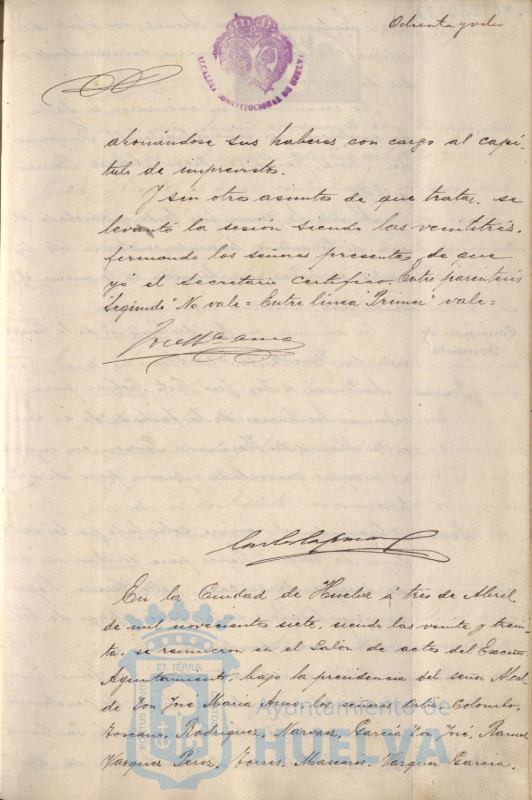 Ochenta y ocho
ALCALDIA CONSTITUCIONAL DE HUELVA
abonándose sus haberes con cargo al capí-
tulo de imprevistos.
Y sin otros asuntos de que tratar, se
levantó la sesión siendo las veintitrés,
firmando los señores presentes, de que
yó el Secretario certifico. Entre parentesis
"Segundo" No vale = Entre línea "Primer" vale =
En la Ciudad de Huelva á tres de Abril
de mil novecientos siete, siendo las veinte y trein-
ta, se reunieron en el Salón de actos del Excmo.
Ayuntamiento, bajo la presidencia del señor Alcal-
de Don José Maria los señores Colombo,
Toscano, Rodriguez, Narvaez, García Don José, Ramos,
Vazquez Perez, Torres, Mascaros, Vazquez García,
PORTUS MARIS ET TERRÆ CUSTODIA
Ayuntamiento de
HUELVA